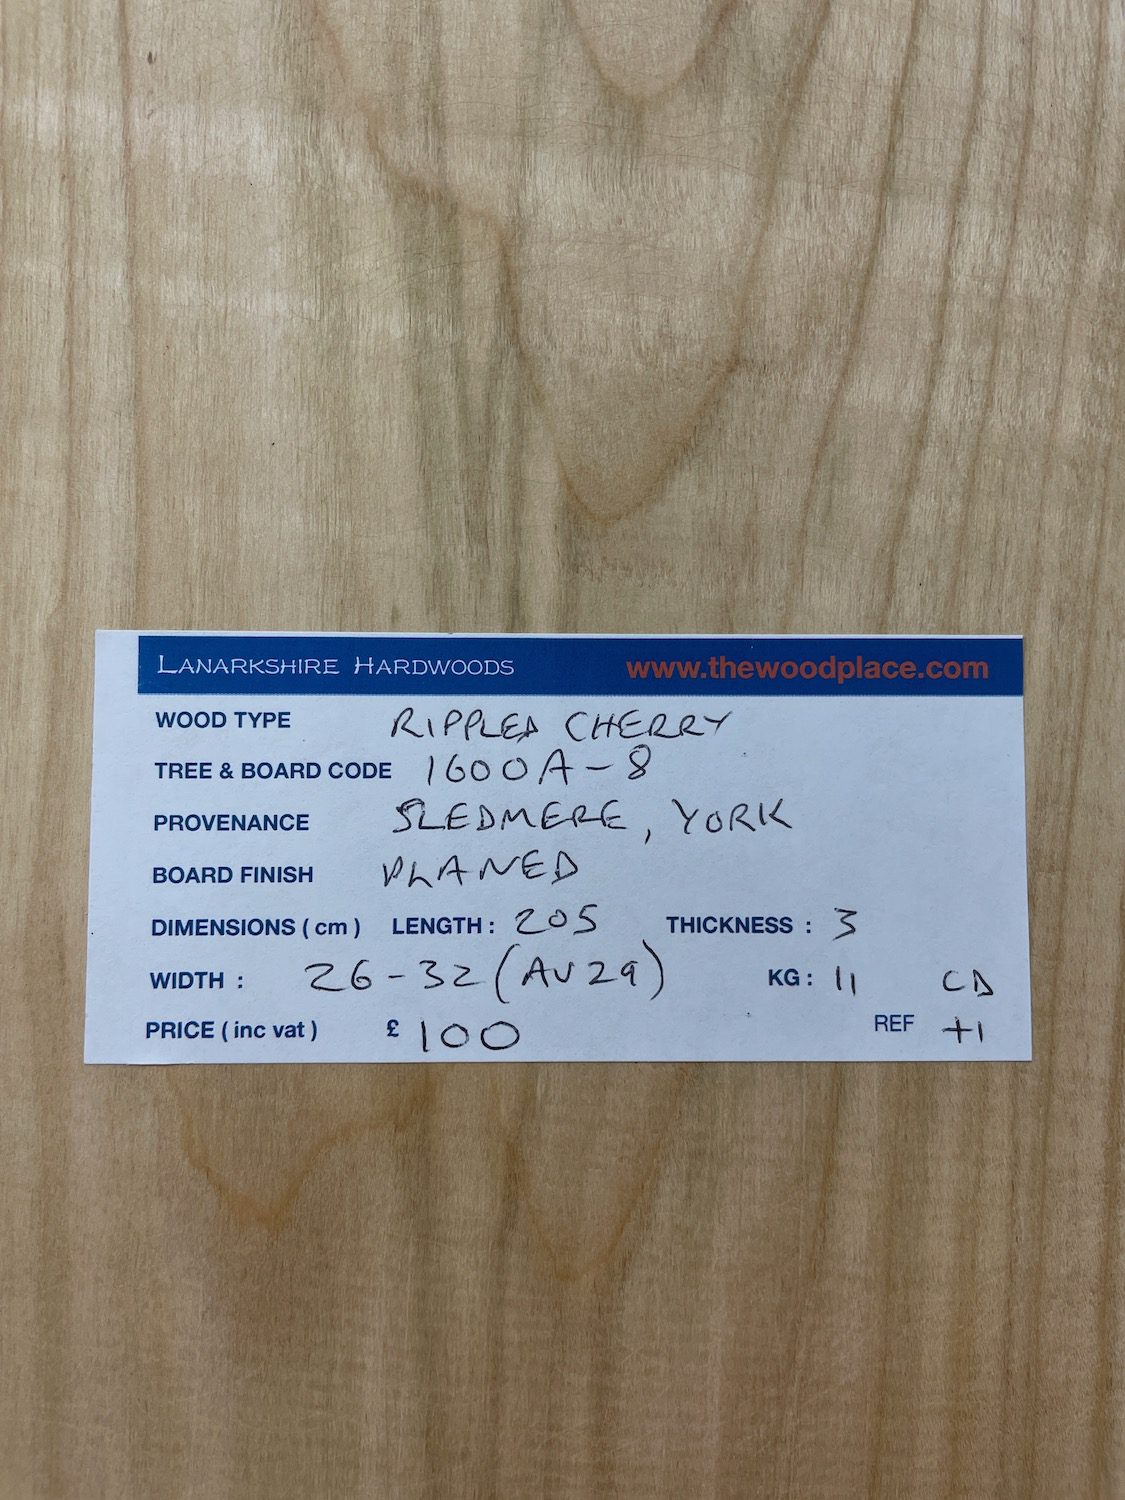 LANARKSHIRE HARDWOODS www.thewoodplace.com
WOOD TYPE RIPPLED CHERRY
TREE & BOARD CODE 1600A-8
PROVENANCE SLEDMERE, YORK
BOARD FINISH PLANED
DIMENSIONS ( cm ) LENGTH : 205 THICKNESS : 3
WIDTH : 26-32 (AV 29) KG : 11 CD
PRICE ( inc vat ) £ 100 REF +1